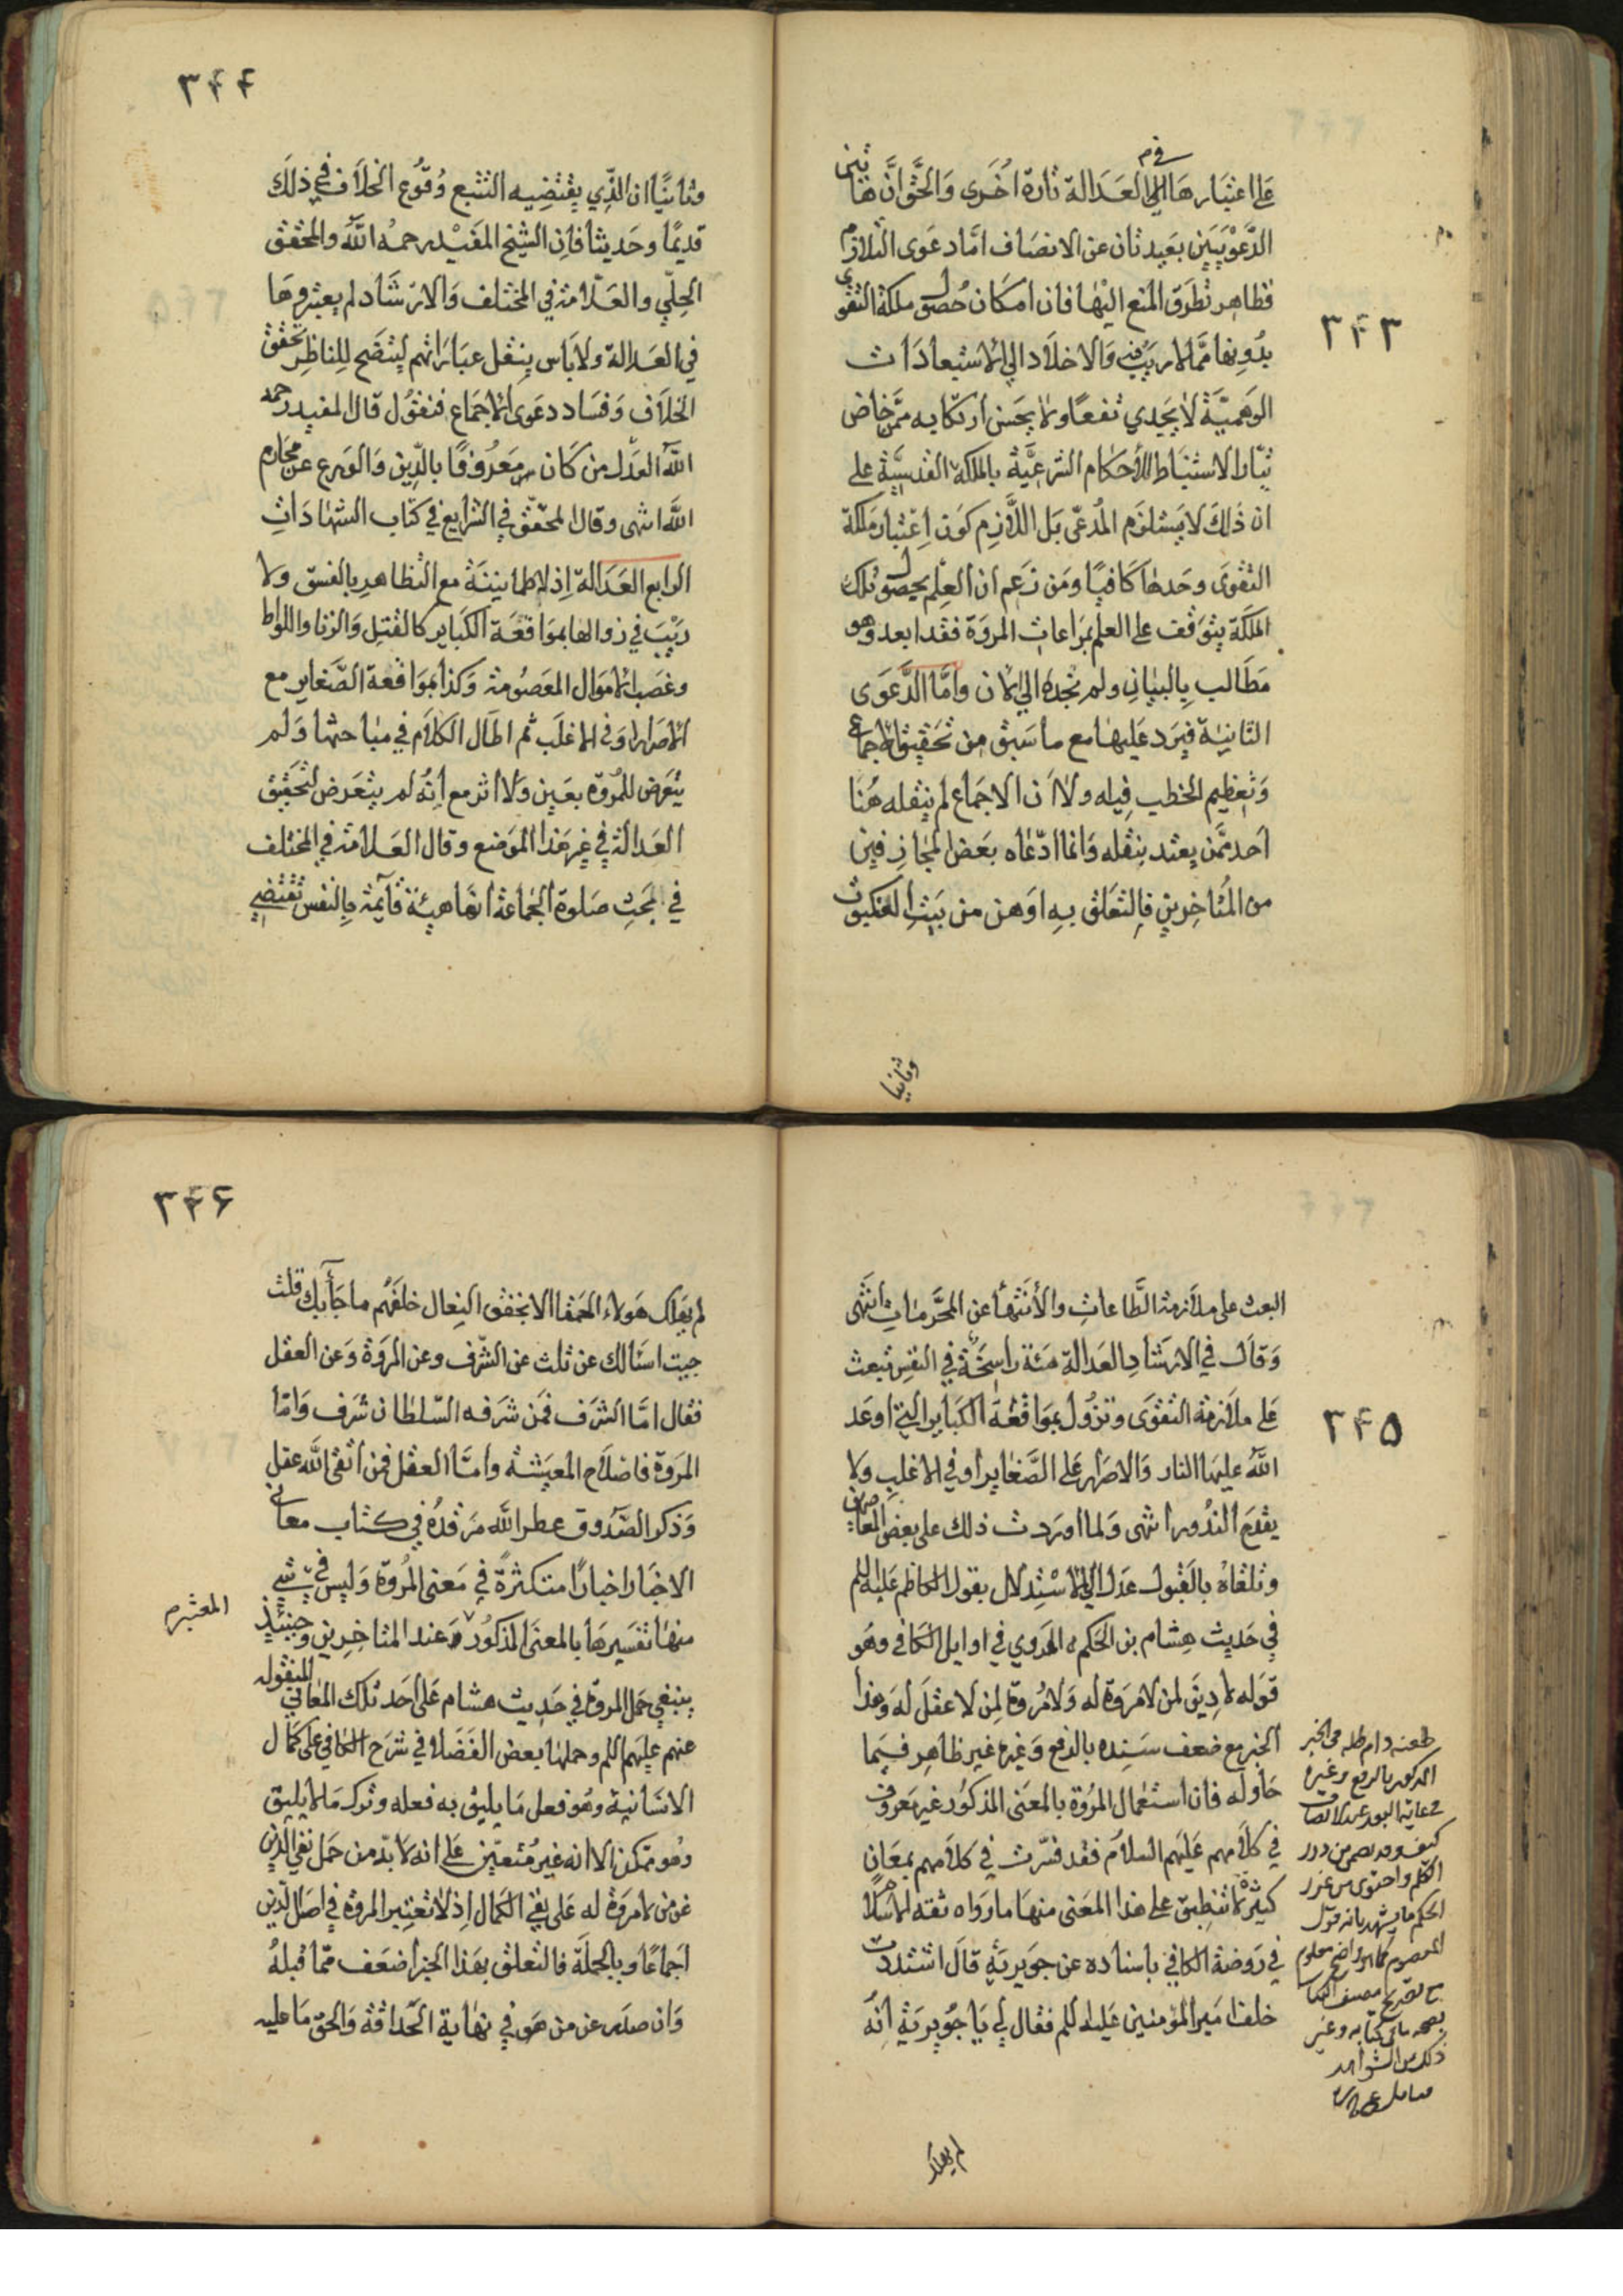 ٣٤٣
على اعتبارها في العدالة تارة اخرى والحق ان هاتين
الدعويين بعيدتان عن الانصاف اما دعوى التلازم
فظاهر تطرق المنع اليها فان امكان حصول ملكة التقوى
بدونها مما لا ريب فيه والاخلاد الى الاستبعادات
الوهمية لا يجدي نفعا ولا يحسن ارتكابه ممن خاض
تيار الاستنباط للأحكام الشرعية بالملكة القدسية على
ان ذلك لا يستلزم المدعى بل اللازم كون اعتبار ملكة
التقوى وحدها كافيا ومن زعم ان العلم بحصول تلك
الملكة يتوقف على العلم بمراعات المروة فقد ابعد وهو
مطالب بالبيان ولم نجده الى الان واما الدعوى
الثانية فيرد عليها مع ما سبق من تحقيق الاجماع
وتعظيم الخطب فيه ولا ان الاجماع لم ينقله هنا
احد ممن يعتد بنقله وانما ادعاه بعض المجازفين
من المتاخرين فالتعلق به اوهن من بيت العنكبوت
وثانيا
٣٤٤
وثانيا ان الذي يقتضيه التتبع وقوع الخلاف في ذلك
قديما وحديثا فان الشيخ المفيد رحمه الله والمحقق
الحلي والعلامة في المختلف والارشاد لم يعتبروها
في العدالة ولا باس بنقل عباراتهم ليتضح للناظر تحقق
الخلاف وفساد دعوى الاجماع فنقول قال المفيد رحمه
الله العدل من كان معروفا بالدين والورع عن محارم
الله انتهى وقال المحقق في الشرايع في كتاب الشهادات
الرابع العدالة اذ لا طمانينة مع التظاهر بالفسق ولا
ريب في زوالها بمواقعة الكباير كالقتل والزنا واللواط
وغصب الاموال المعصومة وكذا بمواقعة الصغاير مع
الاصرار او في الاغلب ثم اطال الكلام في مباحثها ولم
يتعرض للمروة بعين ولا اثر مع انه لم يتعرض لتحقيق
العدالة في غير هذا الموضع وقال العلامة في المختلف
في بحث صلوة الجماعة انها هيئة قائمة بالنفس تقتضي
٣٤٥
البعث على ملازمة الطاعات والأنتهأ عن المحرمات انتهى
وقال في الارشاد العدالة هيئة راسخة في النفس تبعث
على ملازمة التقوى وتزول بمواقعة الكباير التي اوعد
الله عليها النار والاصرار على الصغاير او في الاغلب ولا
يقدح الندور انتهى ولما اوردت ذلك على بعض المعاصرين
وتلقاه بالقبول عدل الى الاستدلال بقول الكاظم عليه السلم
في حديث هشام بن الحكم المروي في اوايل الكافي وهو
قوله لا دين لمن لا مروة له ولا مروة لمن لا عقل له وهذا
الخبر مع ضعف سنده بالرفع وغيره غير ظاهر فيما
حاوله فان استعمال المروة بالمعنى المذكور غير معروف
في كلامهم عليهم السلام فقد فسرت في كلامهم بمعان
كثيرة لا تنطبق على هذا المعنى منها ما رواه ثقة الاسلام
في روضة الكافي باسناده عن جويرية قال اشتددت
خلف امير المؤمنين عليه السلم فقال لي يا جويرية انه
المذكور بالرفع وغيره
لم يهلك
٣٤٦
لم يهلك هولاء الحمقا الا بخفق النعال خلفهم ما جأ بك قلت
جيت اسالك عن ثلث عن الشرف وعن المروة وعن العقل
فقال اما الشرف فمن شرفه السلطان شرف واما
المروة فاصلاح المعيشة واما العقل فمن اتقى الله عقل
وذكر الصدوق عطر الله مرقده في كتاب معاني
الاخبار اخبارا متكثرة في معنى المروة وليس في شي
منها تفسيرها بالمعنى المذكور عند المتاخرين وحينئذ
المعتبر م
ينبغي حمل المروة في حديث هشام على احد تلك المعاني المنقولة
عنهم عليهم السلم وحملها بعض الفضلاء في شرح الكافي على كمال
الانسانية وهو فعل ما يليق به فعله وترك ما لا يليق
وهو ممكن الا انه غير متعين على انه لا بد من حمل نفي الدين
عن من لا مروة له على نفي الكمال اذ لا تعتبر المروة في اصل الدين
اجماعا وبالجملة فالتعلق بهذا الخبر اضعف مما قبله
وان صدر عن من هو في نهاية الحذاقة والحق ما عليه